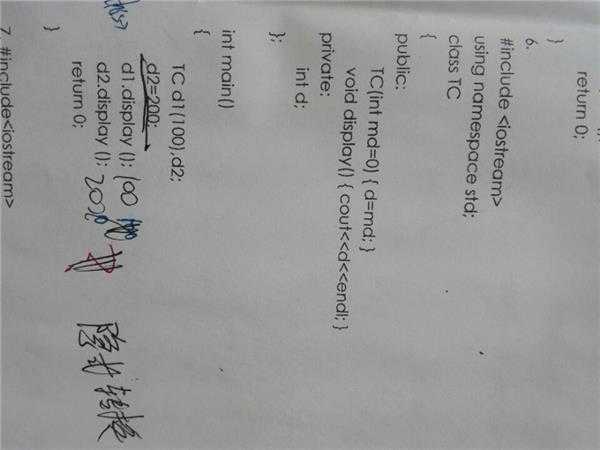 return 0;
}
6.
#include <iostream>
using namespace std;
class TC
{
public:
TC(int md=0) { d=md; }
void display() { cout<<d<<endl; }
private:
int d;
};
int main()
{
TC d1(100),d2;
d2=200;
d1.display (); 100
d2.display (); 200 隐式转换
return 0;
}
7. #include<iostream>